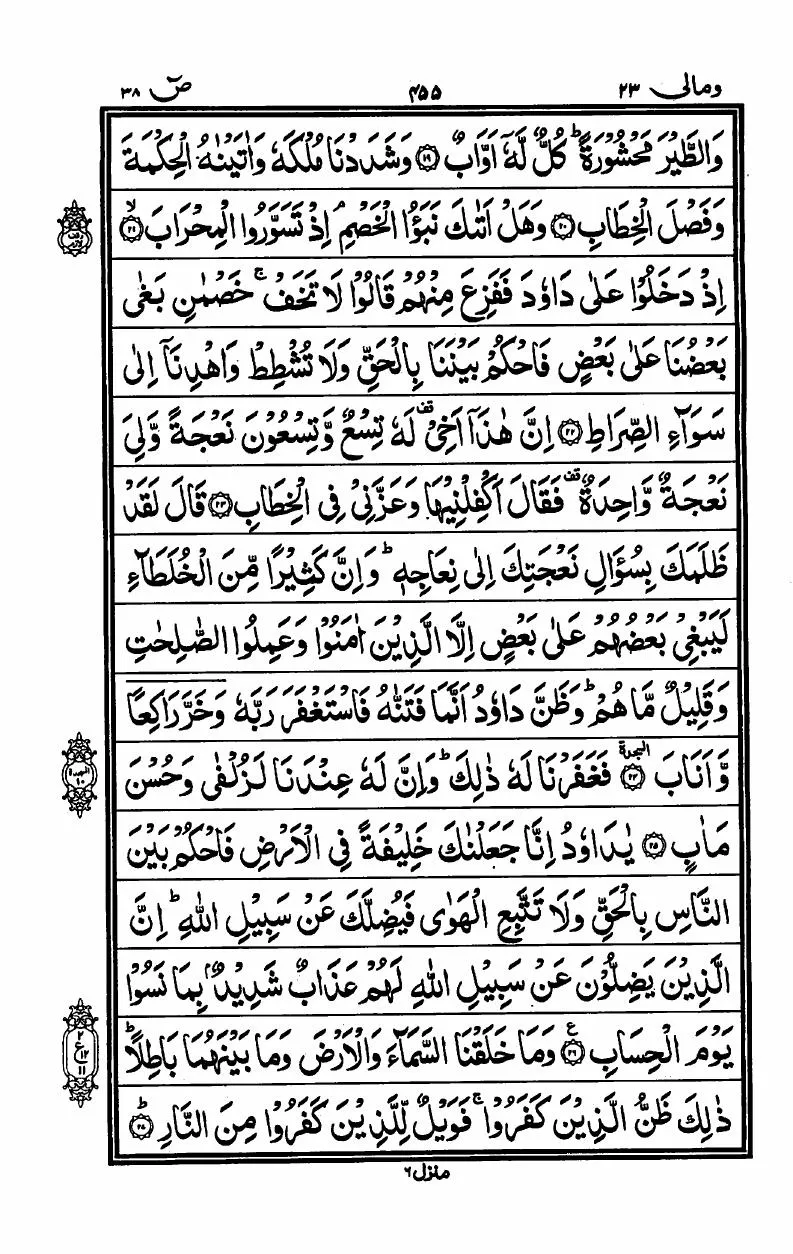 ومالی ۲۳ ۴۵۵ صٓ ۳۸
وَالطَّيْرَ مَحْشُوْرَةً ؕ كُلٌّ لَّهٗۤ اَوَّابٌ ﴿۱۹﴾ وَشَدَدْنَا مُلْكَهٗ وَاٰتَيْنٰهُ الْحِكْمَةَ
وَفَصْلَ الْخِطَابِ ﴿۲۰﴾ وَهَلْ اَتٰىكَ نَبَؤُا الْخَصْمِ ۘ اِذْ تَسَوَّرُوا الْمِحْرَابَ ﴿۲۱﴾ ۙ
وقف لازم
اِذْ دَخَلُوْا عَلٰى دَاوٗدَ فَفَزِعَ مِنْهُمْ قَالُوْا لَا تَخَفْ ۚ خَصْمٰنِ بَغٰى
بَعْضُنَا عَلٰى بَعْضٍ فَاحْكُمْ بَيْنَنَا بِالْحَقِّ وَلَا تُشْطِطْ وَاهْدِنَاۤ اِلٰى
سَوَآءِ الصِّرَاطِ ﴿۲۲﴾ اِنَّ هٰذَاۤ اَخِيْ ۫ لَهٗ تِسْعٌ وَّتِسْعُوْنَ نَعْجَةً وَّلِيَ
نَعْجَةٌ وَّاحِدَةٌ ۫ فَقَالَ اَكْفِلْنِيْهَا وَعَزَّنِيْ فِي الْخِطَابِ ﴿۲۳﴾ قَالَ لَقَدْ
ظَلَمَكَ بِسُؤَالِ نَعْجَتِكَ اِلٰى نِعَاجِهٖ ؕ وَاِنَّ كَثِيْرًا مِّنَ الْخُلَطَآءِ
لَيَبْغِيْ بَعْضُهُمْ عَلٰى بَعْضٍ اِلَّا الَّذِيْنَ اٰمَنُوْا وَعَمِلُوا الصّٰلِحٰتِ
وَقَلِيْلٌ مَّا هُمْ ؕ وَظَنَّ دَاوٗدُ اَنَّمَا فَتَنّٰهُ فَاسْتَغْفَرَ رَبَّهٗ وَخَرَّ رَاكِعًا
وَّاَنَابَ ﴿۲۴﴾ السجدة فَغَفَرْنَا لَهٗ ذٰلِكَ ؕ وَاِنَّ لَهٗ عِنْدَنَا لَزُلْفٰى وَحُسْنَ
السجدة ۱۰
مَاٰبٍ ﴿۲۵﴾ يٰدَاوٗدُ اِنَّا جَعَلْنٰكَ خَلِيْفَةً فِي الْاَرْضِ فَاحْكُمْ بَيْنَ
النَّاسِ بِالْحَقِّ وَلَا تَتَّبِعِ الْهَوٰى فَيُضِلَّكَ عَنْ سَبِيْلِ اللّٰهِ ؕ اِنَّ
الَّذِيْنَ يَضِلُّوْنَ عَنْ سَبِيْلِ اللّٰهِ لَهُمْ عَذَابٌ شَدِيْدٌۢ بِمَا نَسُوْا
يَوْمَ الْحِسَابِ ﴿۲۶﴾ ع وَمَا خَلَقْنَا السَّمَآءَ وَالْاَرْضَ وَمَا بَيْنَهُمَا بَاطِلًا ؕ
۲ ع ۱۲ ۱۱
ذٰلِكَ ظَنُّ الَّذِيْنَ كَفَرُوْا ۚ فَوَيْلٌ لِّلَّذِيْنَ كَفَرُوْا مِنَ النَّارِ ﴿۲۷﴾ ؕ
منزل ۶